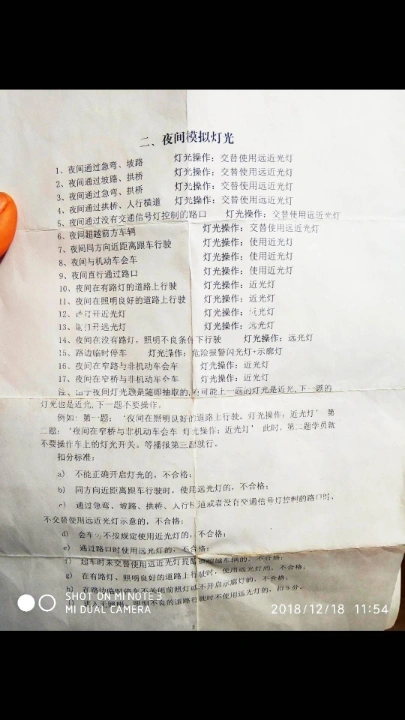 二、夜间模拟灯光
1、夜间通过急弯、坡路 灯光操作：交替使用远近光灯
2、夜间通过坡路、拱桥 灯光操作：交替使用远近光灯
3、夜间通过急弯、拱桥 灯光操作：交替使用远近光灯
4、夜间通过拱桥、人行横道 灯光操作：交替使用远近光灯
5、夜间通过没有交通信号灯控制的路口 灯光操作：交替使用远近光灯
6、夜间超越前方车辆 灯光操作：交替使用远近光灯
7、夜间同方向近距离跟车行驶 灯光操作：使用近光灯
8、夜间与机动车会车 灯光操作：使用近光灯
9、夜间直行通过路口 灯光操作：使用近光灯
10、夜间在有路灯的道路上行驶 灯光操作：近光灯
11、夜间在照明良好的道路上行驶 灯光操作：近光灯
12、请打开近光灯 灯光操作：近光灯
13、打开远光灯 灯光操作：远光灯
14、夜间在没有路灯，照明不良条件下行驶 灯光操作：远光灯
15、路边临时停车 灯光操作：危险报警闪光灯+示廓灯
16、夜间在窄路与非机动车会车 灯光操作：近光灯
17、夜间在窄桥与非机动车会车 灯光操作：近光灯
夜间灯光题是随即抽取的,有可能上一题的灯光是近光,下一题的
灯光也是近光,下一题不要操作。
例如：第一题：‘夜间在照明良好的道路上行驶。灯光操作：近光灯’ 第
二题：‘夜间在窄桥与非机动车会车 灯光操作：近光灯’ 此时，第二题学员就
不要操作车上的灯光开关。等播报第三题就行。
扣分标准：
a） 不能正确开启灯光的，不合格；
b） 同方向近距离跟车行驶时，使用远光灯的，不合格；
c） 通过急弯、坡路、拱桥、人行横道或者没有交通信号灯控制的路口时，
不交替使用远近光灯示意的，不合格；
d） 会车时不按规定使用近光灯的，不合格；
e） 通过路口时使用远光灯的，不合格；
f） 超车时未交替使用远近光灯提醒被超越车辆的，不合格；
g） 在有路灯、照明良好的道路上行驶时，使用远光灯的，不合格。
h） 在路边临时停车不关闭前照灯或不开启示廓灯的，不合格
时不使用远光灯的，扣
SHOT ON MI NOTE 3
MI DUAL CAMERA
2018/12/18 11:54